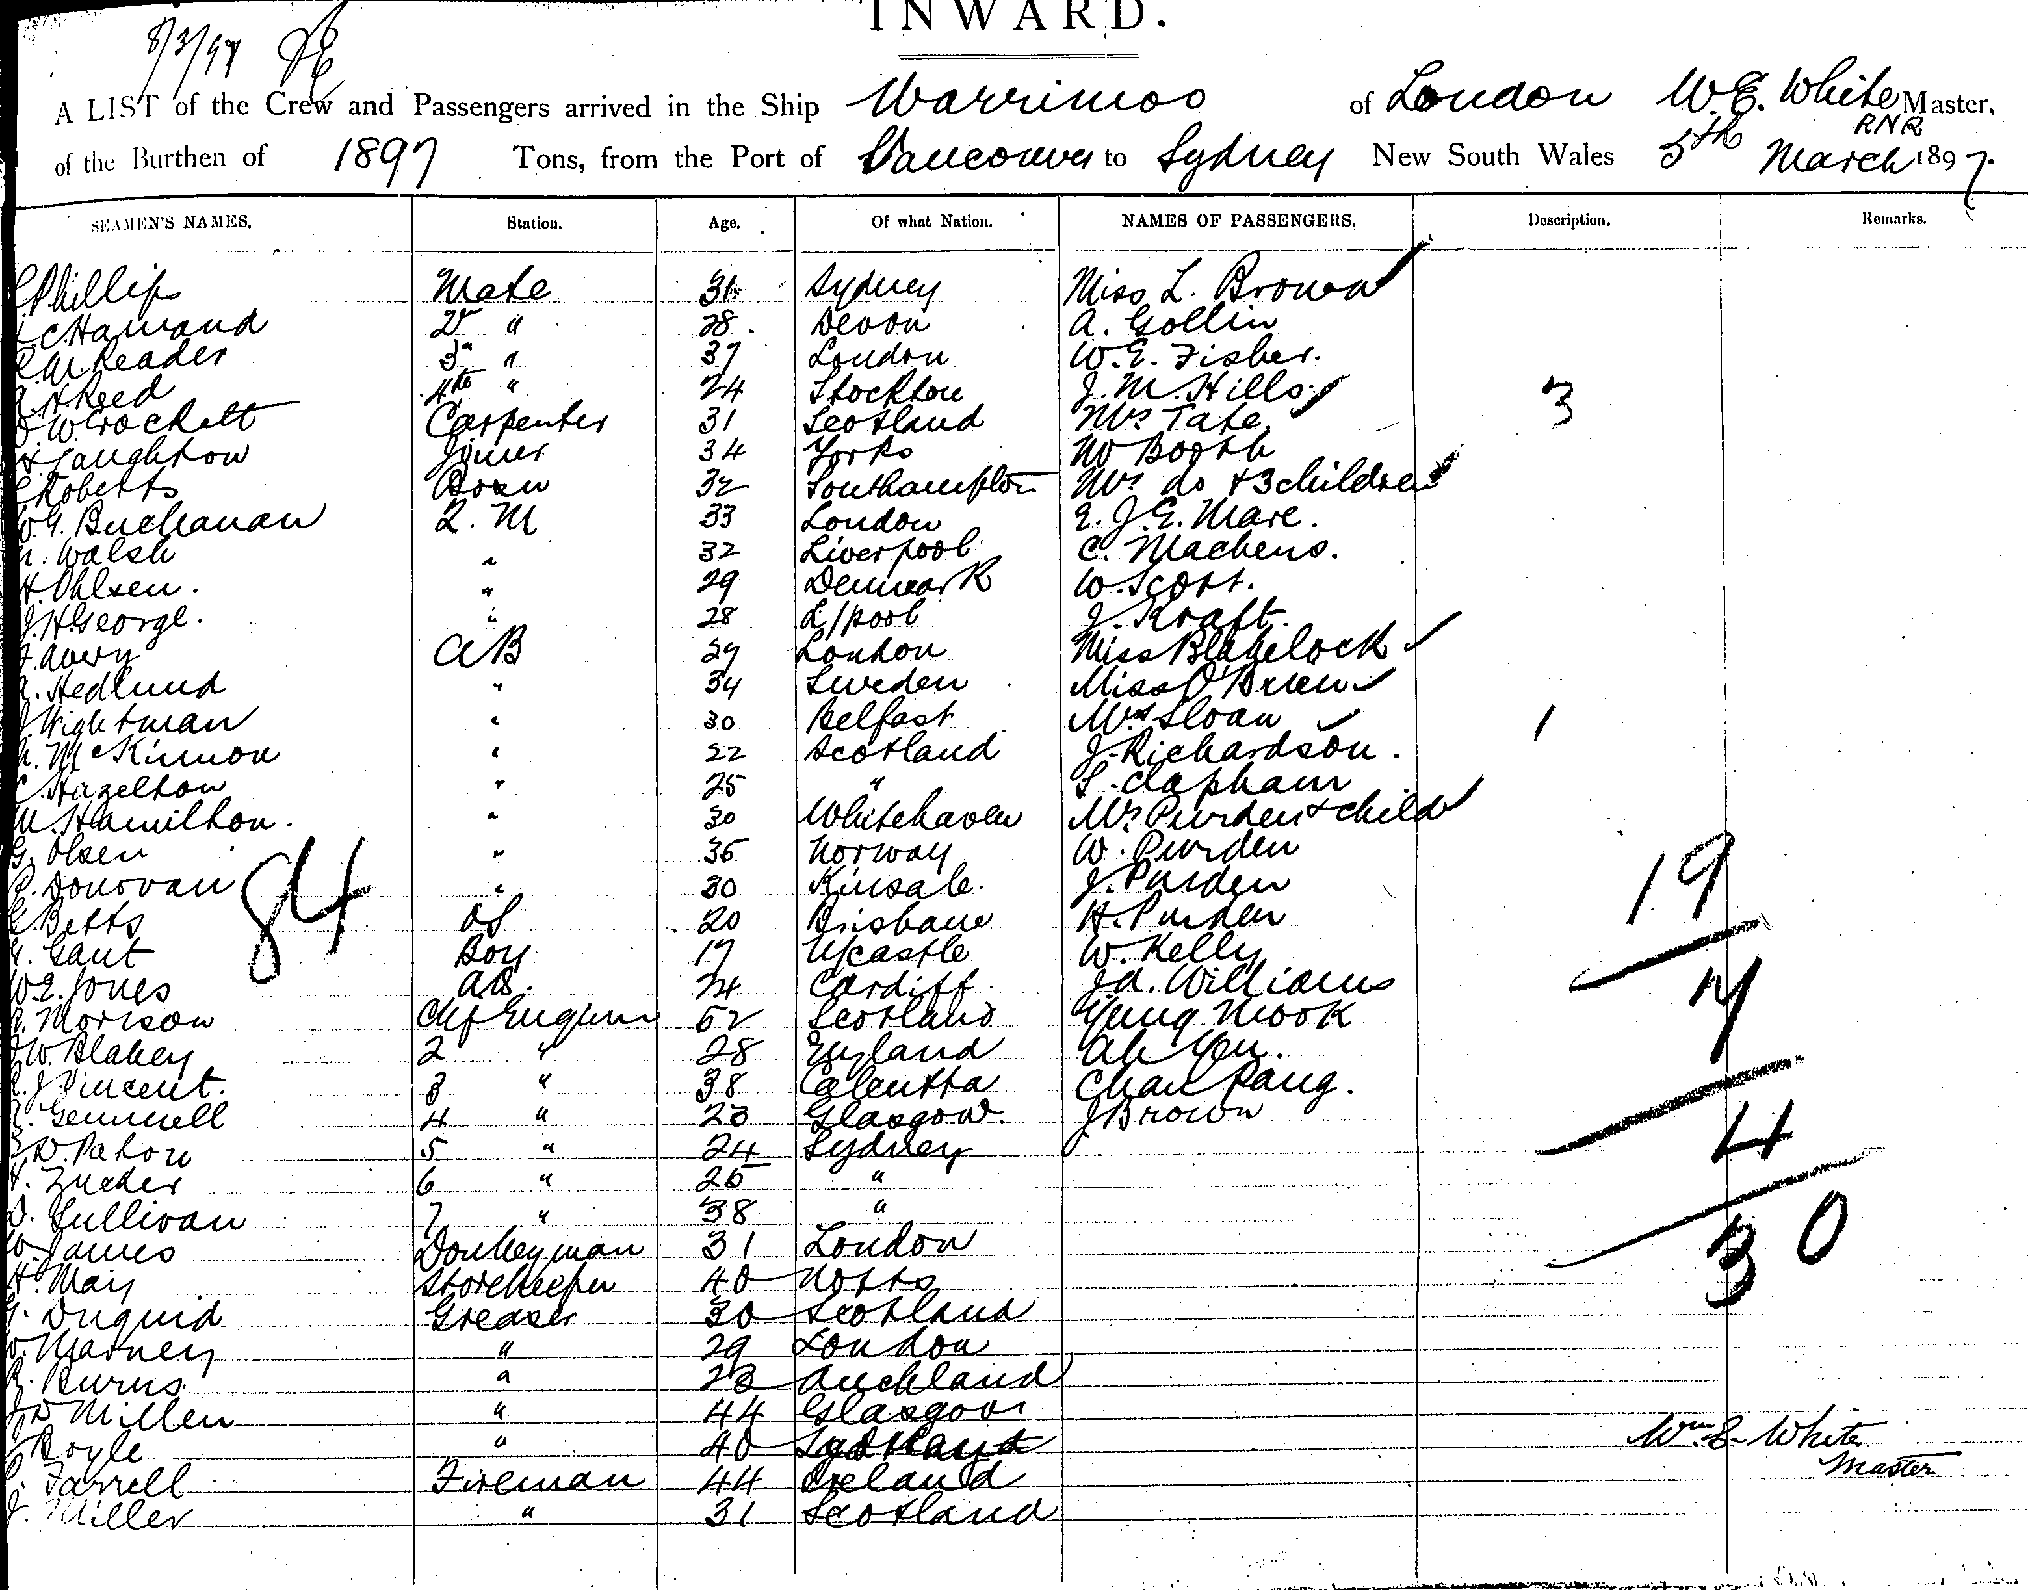 INWARD.
8/3/97
A LIST of the Crew and Passengers arrived in the Ship Warrimoo of London W. E. White Master,
RNR
of the Burthen of 1897 Tons, from the Port of Vancouver to Sydney New South Wales 5th March 1897.
SEAMEN'S NAMES. Station. Age. Of what Nation. NAMES OF PASSENGERS. Description. Remarks.
Phillips Mate Sydney Miss L. Brown
C Hamand 2d " 28. Devon A. Gollin
Reader 3d " 37 London W. E. Fisher.
H Reed 4th " 24 Stockton J. M. Hills. 3
W Crockett Carpenter 31 Scotland Mrs Tate
Laughton Joiner 34 Yorks W Booth
Roberts Bosn 32 Southampton Mrs do + 3 children
W G. Buchanan Q. M 33 London E. J. E. Mare.
Walsh " 32 Liverpool C. Machens.
H Ohlsen. " 29 Denmark W. Scott.
J. H George. " 28 L/pool J. Kraft.
Avery AB 29 London Miss Blakelock
Hedlund " 34 Sweden Miss O'Brien
Wightman " 30 Belfast Mrs Sloan 1
McKinnon " 22 Scotland J. Richardson.
C Hazelton " 25 " S. Clapham
W. Hamilton. " 30 Whitehaven Mrs Purden + child
G. Olsen " 36 Norway W. Purden 19
Donovan 84 " 30 Kinsale. J. Purden
Betts OS 20 Brisbane H. Purden
Gant Boy 17 N/castle W. Kelly
W. E. Jones AB. 24 Cardiff. J A. Williams 7
Morison Chf Engineer 52 Scotland Yung Mook
W. Blakey 2 " 28 England Ah You.
J Vincent. 3 " 38 Calcutta Chan Pang.
Gemmell 4 " 23 Glasgow. J Brown 4
D. Paton 5 " 24 Sydney
Zucker 6 " 25 "
D. Sullivan 7 " 38 " 30
W. James Donkeyman 31 London
H. May Storekeeper 40 Notts
Duguid Greaser 30 Scotland
Marney " 29 London
Burns " 23 Auckland
Millen " 44 Glasgow Wm. E. White
Boyle " 40 Master
Farrell Fireman 44 Ireland
J. Miller " 31 Scotland